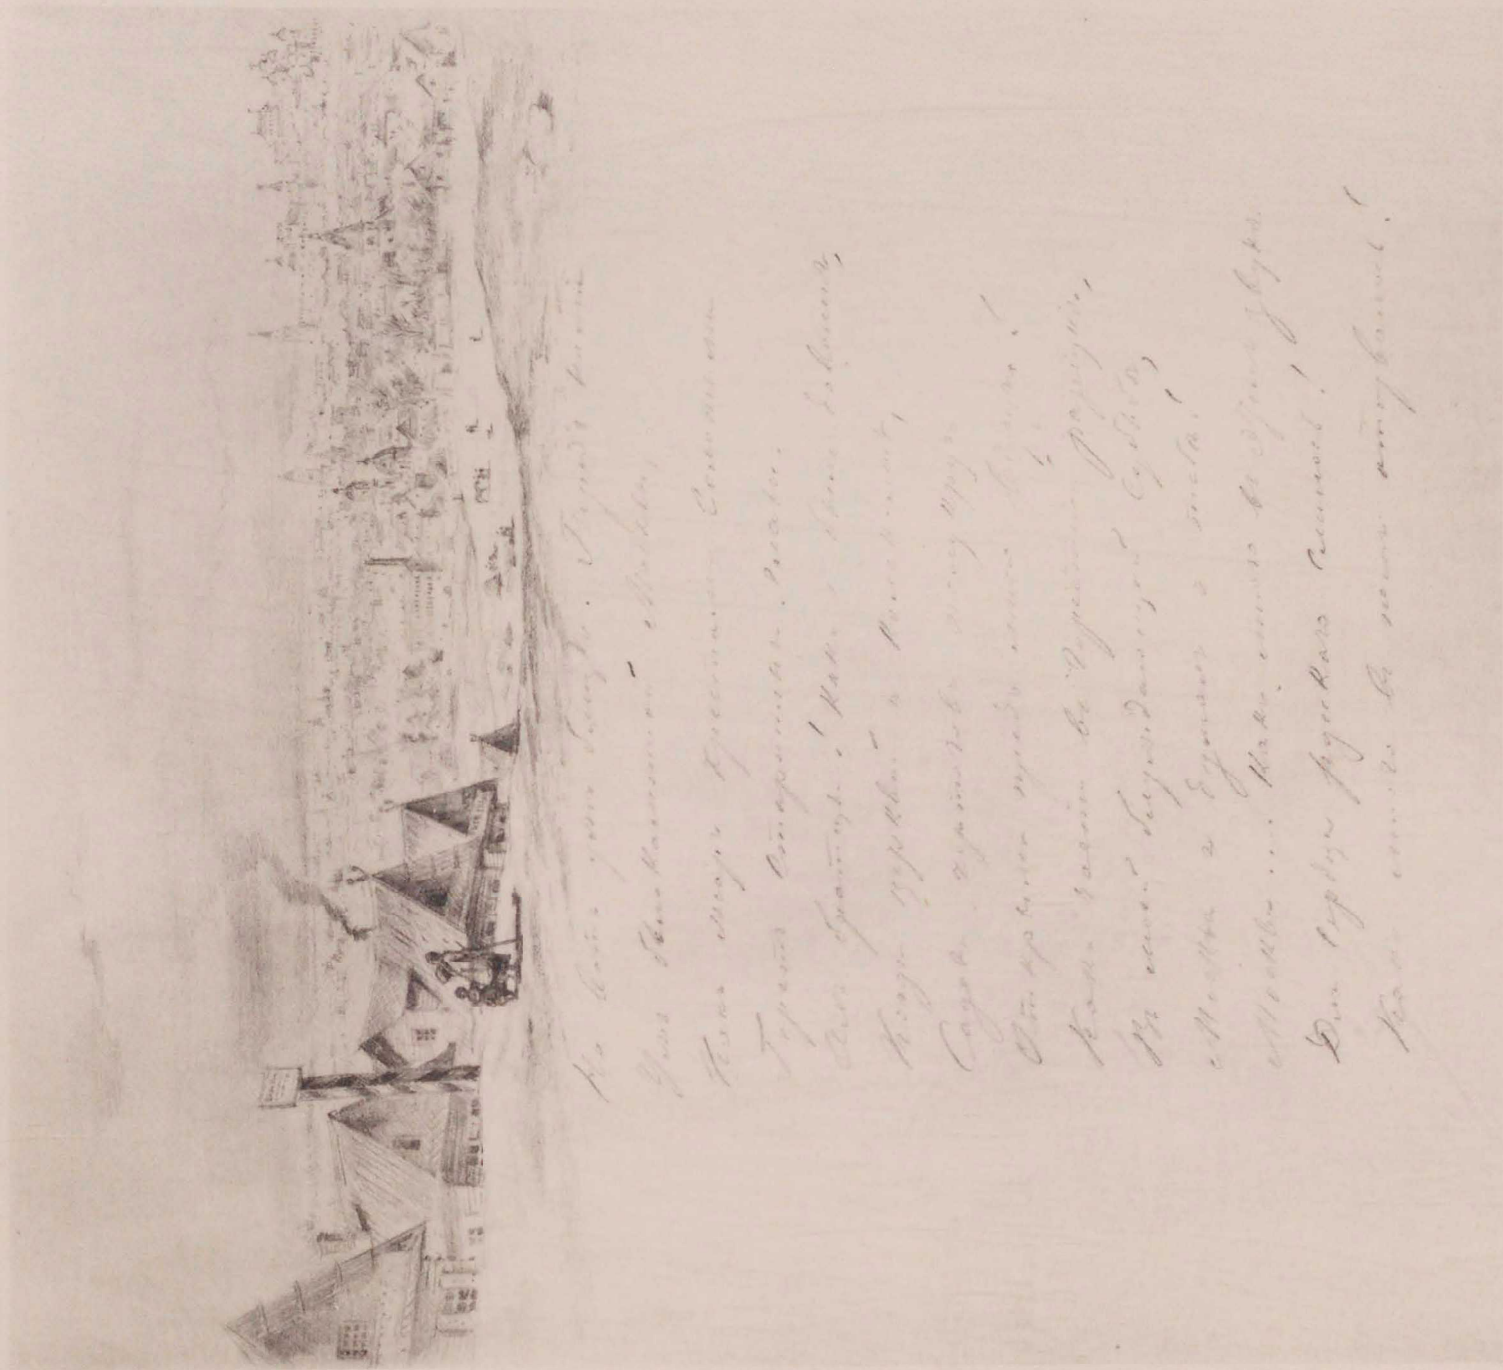 Но вотъ ужъ близко. Передъ ними
Ужъ бѣлокаменной Москвы,
Какъ жаръ крестами золотыми
Горятъ старинныя главы.
Ахъ братцы! какъ я былъ доволенъ,
Когда церквей и колоколенъ,
Садовъ чертоговъ полукругъ
Открылся предо мною вдругъ!
Какъ часто въ горестной разлукѣ,
Въ моей блуждающей судьбѣ,
Москва я думалъ о тебѣ!
Москва... какъ много въ этомъ звукѣ
Для сердца русскаго слилось!
Какъ много въ немъ отозвалось!